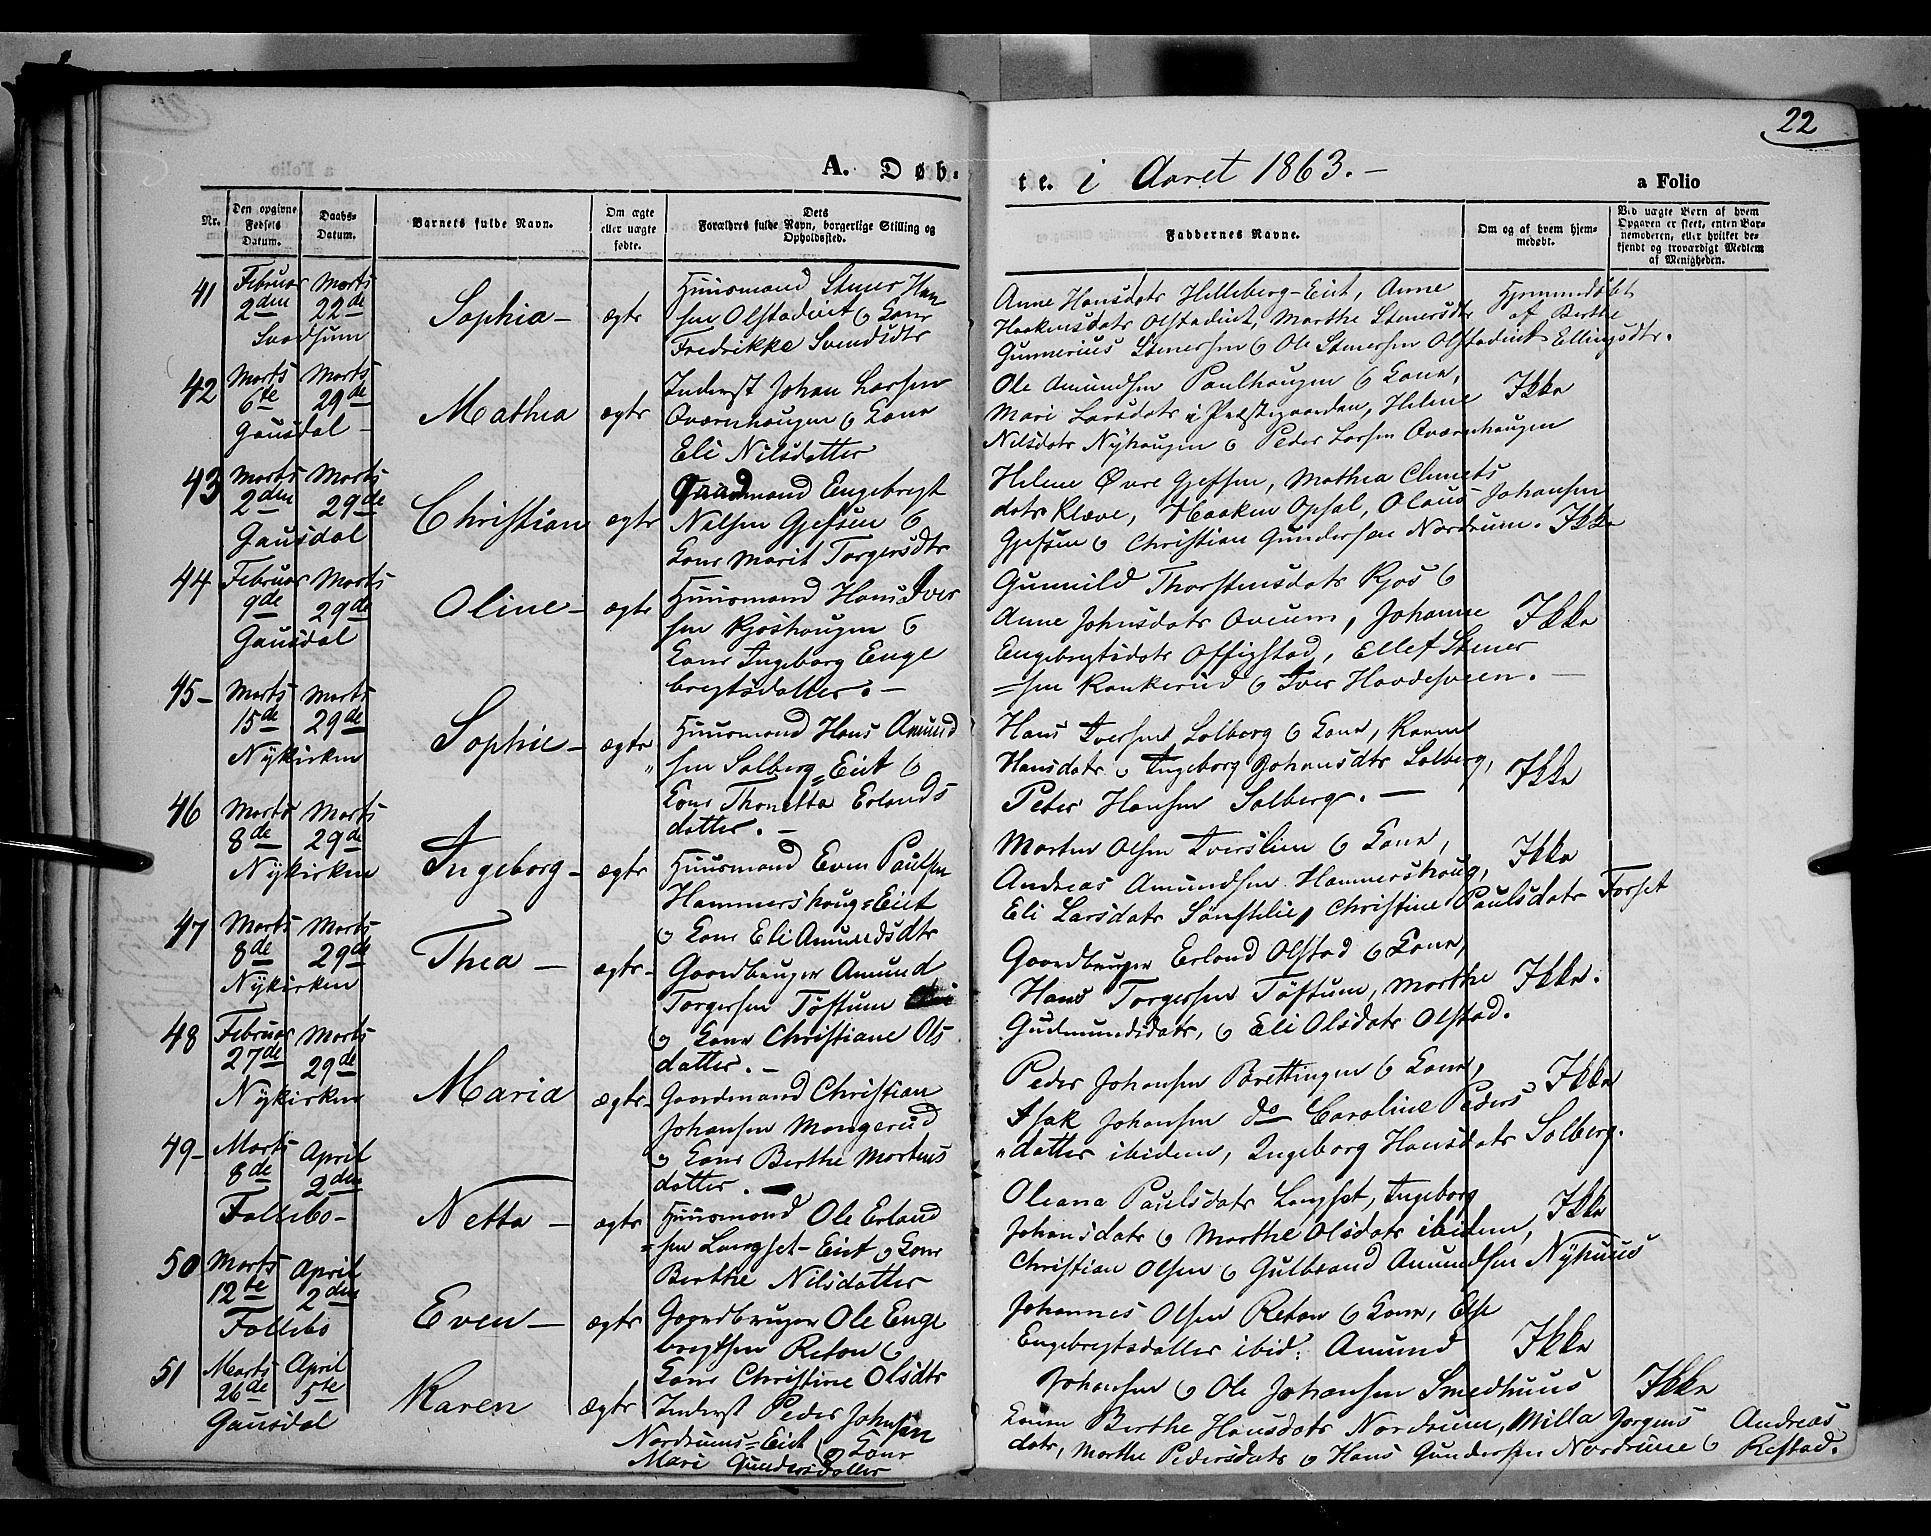 22
A. Døb- te. i Aaret 1863. -
a Folio
Nr.
Den opgivne Fødsels Datum.
Daabs-Datum.
Barnets fulde Navn.
Om ægte eller uægte fødte.
Dets Forældres fulde Navn, borgerlige Stilling og Opholdssted.
Faddernes Navne.
Om og af hvem hjemmedøbt.
Ved uægte Børn af hvem Opgaven er skeet, enten Barnemoderen, eller hvilket bekjendt og troværdigt Medlem af Menigheden.
41
Februar 2den
Marts 22de
Svadsum
Sophia -
ægte
Huusmand Stener Han
sen Olstadeiet & Kone
Fredrikke Svendsdtr
Anne Hansdatr Helleberg-Eiet, Anne
Haakensdatr Olstadeiet, Marthe Stenersdtr
Gunnerius Stenersen & Ole Stenersen Olstadeiet
Hjemmedøbt
af Berthe
Ellingsdtr.
42
Marts 6te
Marts 29de
Gausdal -
Mathea
ægte
Inderst Johan Larsen
Qværnhaugen & Kone
Eli Nilsdatter
Ole Amundsen Paulhaugen & Kone,
Mari Larsdatr i Præstegaarden, Helene
Nilsdatr Nyhaugen & Peder Larsen Qværnhaugen
Ikke
43
Marts 2den
Marts 29de
Gausdal
Christian
ægte
Gaardmand Engebregt
Nilsen Gjefsen &
Kone Marit Torgersdtr
Helene Øvre Gjefsen, Mathea Clemets
datr Kleve, Haaken Opsal, Olaus Johansen
Gjefsen & Christian Gundersen Nordrum.
Ikke
44
Februar 9de
Marts 29de
Gausdal
Oline -
ægte
Huusmand Hans Iver
sen Kjoshaugen &
Kone Ingeborg Enge
bregtsdatter. -
Gunnild Thorstensdatr Kjos &
Anne Johnsdatr Oveum, Johanne
Engebregtsdatr Offigstad, Ellef Stener
=sen Rankerud & Iver Hovdesveen. -
Ikke
45 -
Marts 15de
Marts 29de
Nykirken
Sophie -
ægte
Huusmand Hans Amund
sen Solberg=Eiet &
Kone Thonetta Erlands
datter. -
Hans Iversen Solberg & Kone, Karen
Hansdatr & Ingeborg Johansdtr Solberg,
Peter Hansen Solberg. -
Ikke
46
Marts 8de
Marts 29de
Nykirken
Ingeborg -
ægte
Huusmand Even Paulsen
Hammershoug=Eiet
& Kone Eli Amundsdtr
Morten Olsen Iverslien & Kone,
Andreas Amundsen Hammershoug,
Eli Larsdatr Sønstelie, Christine Paulsdatr Forset
Ikke
47
Marts 8de
Marts 29de
Nykirken
Thea -
ægte -
Gaardbruger Amund
Torgersen Töftum
& Kone Christiane Ols
datter. -
Gaardbruger Erland Olstad & Kone,
Hans Torgersen Töftum, Marthe
Gudmundsdatr, & Eli Olsdatr Olstad.
Ikke.
48
Februar 27de
Marts 29de
Nykirken
Maria
ægte -
Gaardmand Christian
Johansen Mangerud
& Kone Berthe Mortens
datter. -
Peder Johansen Brettingen & Kone,
Isak Johansen do Caroline Peders
"datter ibidem, Ingeborg Hansdatr Solberg.
Ikke
49 -
Marts 8de
April 2den
Follebo -
Netta -
ægte
Huusmand Ole Erland
=sen Langset-Eiet & Kone
Berthe Nilsdatter
Oleana Paulsdatr Langset, Ingeborg
Johansdatr & Marthe Olsdatr ibidem,
Christian Olsen & Gulbrand Amundsen Nyhuus
Ikke
50
Marts 12te
April 2den
Follebo
Even -
ægte
Gaardbruger Ole Enge
bregtsen Reton &
Kone Christine Olsdtr
Johannes Olsen Reton & Kone, Else
Engebregtsdatter ibid: Amund
Johansen & Ole Johansen Smedhuus
Ikke
51
Marts 26de
April 5te
Gausdal
Karen
ægte
Inderst Peder Johnsen
Nordrums=Eiet & Kone
Mari Gundersdatter
Konen Berthe Hansdatr Nordrum, Milla Jörgens
datr, Marthe Pedersdatr & Hans Gundersen Nordrum & Andreas
Refstad.
Ikke